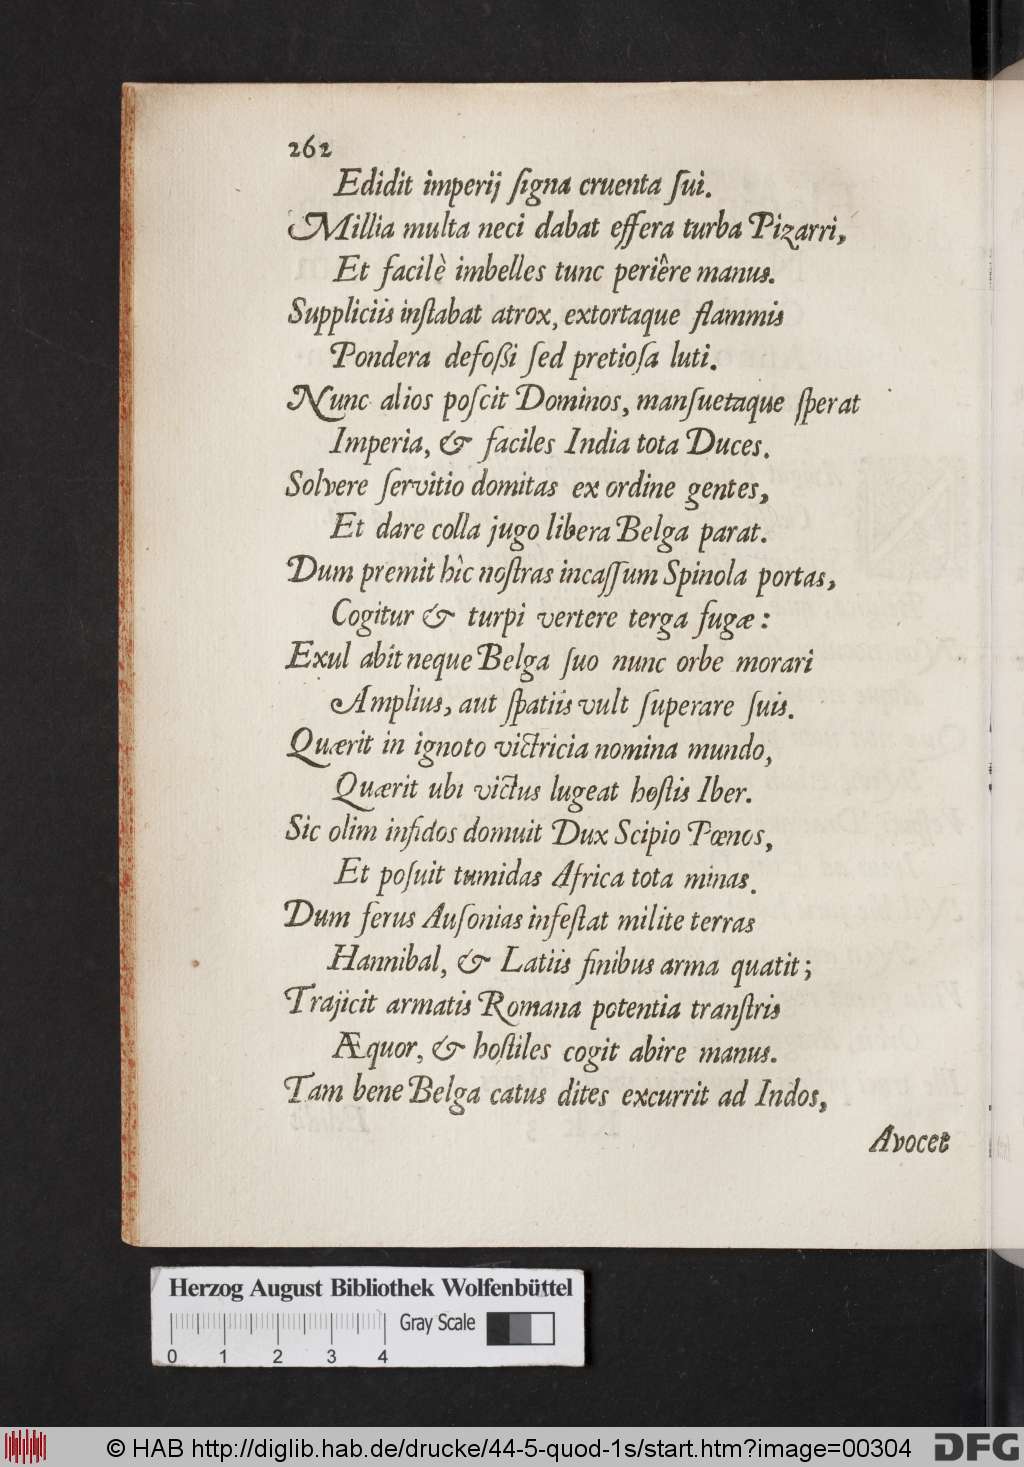 262
Edidit imperij ſigna cruenta ſui.
Millia multa neci dabat effera turba Pizarri,
Et facilè imbelles tunc periêre manus.
Suppliciis inſtabat atrox, extortaque flammis
Pondera defoßi ſed pretioſa luti.
Nunc alios poſcit Dominos, manſuetaque ſperat
Imperia, & faciles India tota Duces.
Solvere ſervitio domitas ex ordine gentes,
Et dare colla jugo libera Belga parat.
Dum premit hìc noſtras incaſſum Spinola portas,
Cogitur & turpi vertere terga fugæ:
Exul abit neque Belga ſuo nunc orbe morari
Amplius, aut ſpatiis vult ſuperare ſuis.
Quærit in ignoto victricia nomina mundo,
Quærit ubi victus lugeat hoſtis Iber.
Sic olim infidos domuit Dux Scipio Pœnos,
Et poſuit tumidas Africa tota minas.
Dum ferus Auſonias infeſtat milite terras
Hannibal, & Latiis finibus arma quatit;
Trajicit armatis Romana potentia tranſtris
Æquor, & hoſtiles cogit abire manus.
Tam bene Belga catus dites excurrit ad Indos,
Avocet
Herzog August Bibliothek Wolfenbüttel
Gray Scale
0 1 2 3 4
© HAB http://diglib.hab.de/drucke/44-5-quod-1s/start.htm?image=00304
DFG